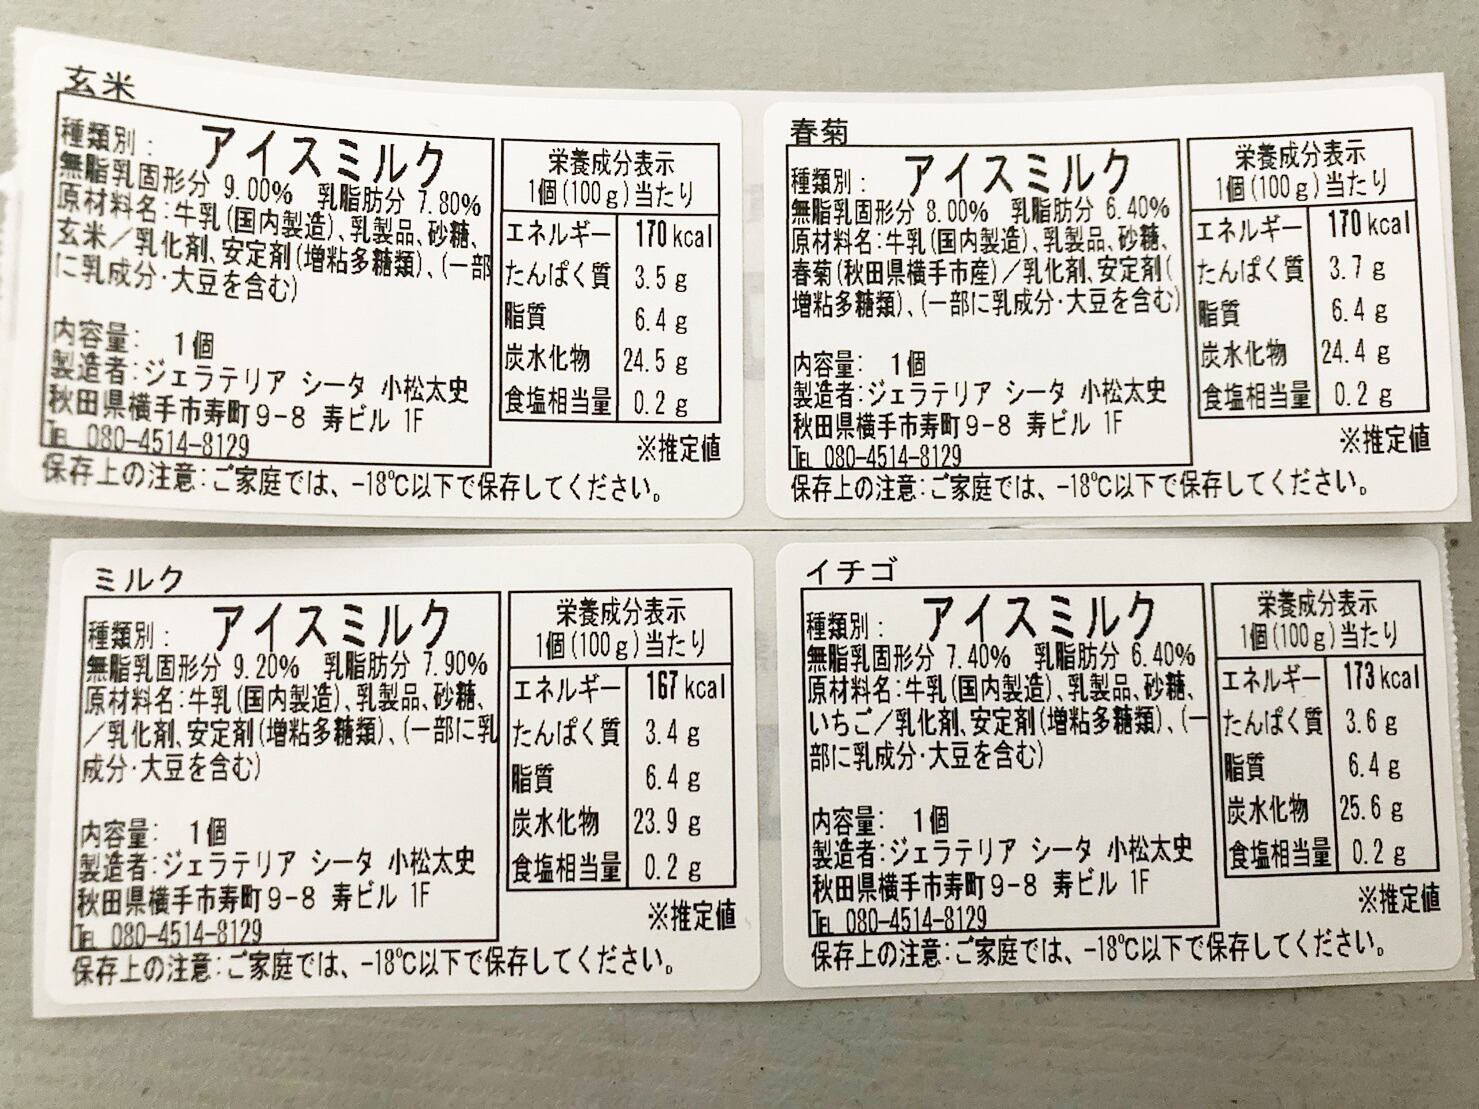 玄米
種類別: アイスミルク
無脂乳固形分 9.00% 乳脂肪分 7.80%
原材料名:牛乳(国内製造)、乳製品、砂糖、
玄米/乳化剤、安定剤(増粘多糖類)、(一部
に乳成分・大豆を含む)
内容量: 1個
製造者:ジェラテリア シータ 小松太史
秋田県横手市寿町9-8 寿ビル 1F
TEL 080-4514-8129
保存上の注意:ご家庭では、-18℃以下で保存してください。
栄養成分表示
1個(100g)当たり
エネルギー 170kcal
たんぱく質 3.5g
脂質 6.4g
炭水化物 24.5g
食塩相当量 0.2g
※推定値
春菊
種類別: アイスミルク
無脂乳固形分 8.00% 乳脂肪分 6.40%
原材料名:牛乳(国内製造)、乳製品、砂糖、
春菊(秋田県横手市産)/乳化剤、安定剤(
増粘多糖類)、(一部に乳成分・大豆を含む)
内容量: 1個
製造者:ジェラテリア シータ 小松太史
秋田県横手市寿町9-8 寿ビル 1F
TEL 080-4514-8129
保存上の注意:ご家庭では、-18℃以下で保存してください。
栄養成分表示
1個(100g)当たり
エネルギー 170kcal
たんぱく質 3.7g
脂質 6.4g
炭水化物 24.4g
食塩相当量 0.2g
※推定値
ミルク
種類別: アイスミルク
無脂乳固形分 9.20% 乳脂肪分 7.90%
原材料名:牛乳(国内製造)、乳製品、砂糖、
/乳化剤、安定剤(増粘多糖類)、(一部に乳
成分・大豆を含む)
内容量: 1個
製造者:ジェラテリア シータ 小松太史
秋田県横手市寿町9-8 寿ビル 1F
TEL 080-4514-8129
保存上の注意:ご家庭では、-18℃以下で保存してください。
栄養成分表示
1個(100g)当たり
エネルギー 167kcal
たんぱく質 3.4g
脂質 6.4g
炭水化物 23.9g
食塩相当量 0.2g
※推定値
イチゴ
種類別: アイスミルク
無脂乳固形分 7.40% 乳脂肪分 6.40%
原材料名:牛乳(国内製造)、乳製品、砂糖、
いちご/乳化剤、安定剤(増粘多糖類)、(一
部に乳成分・大豆を含む)
内容量: 1個
製造者:ジェラテリア シータ 小松太史
秋田県横手市寿町9-8 寿ビル 1F
TEL 080-4514-8129
保存上の注意:ご家庭では、-18℃以下で保存してください。
栄養成分表示
1個(100g)当たり
エネルギー 173kcal
たんぱく質 3.6g
脂質 6.4g
炭水化物 25.6g
食塩相当量 0.2g
※推定値